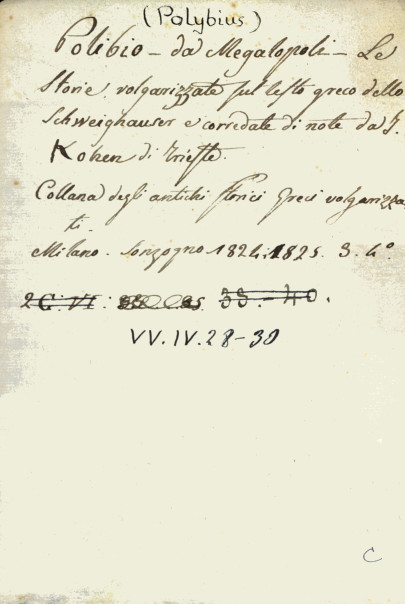 (Polybius)
Polibio – da Megalopoli – Le
Storie volgarizzate sul testo greco dello
Schweighauser e corredate di note da I.
Kohen di Trieste.
Collana degli antichi storici Greci volgarizza-
ti.
Milano. Sonzogno 1824:1825. 3. 4°
2 C. VI. 33.–40.
VV.IV.28–30
C